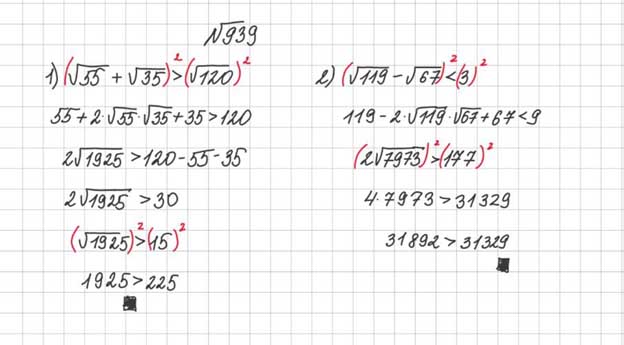 √939
1) (√55 + √35)² > (√120)²
55+2·√55·√35+35>120
2√1925 >120-55-35
2√1925 >30
(√1925)²>(15)²
1925>225
2) (√119 - √67)²<(3)²
119-2·√119·√67+67<9
(2√7973)²>(177)²
4·7973>31329
31892>31329